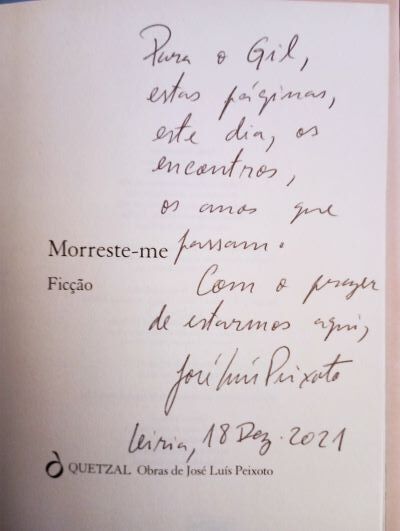 Para o Gil,
estas páginas,
este dia, os
encontros,
os anos que
passam.
Morreste-me
Ficção
Com o prazer
de estarmos aqui,
José Luís Peixoto
Leiria, 18 Dez. 2021
QUETZAL Obras de José Luís Peixoto